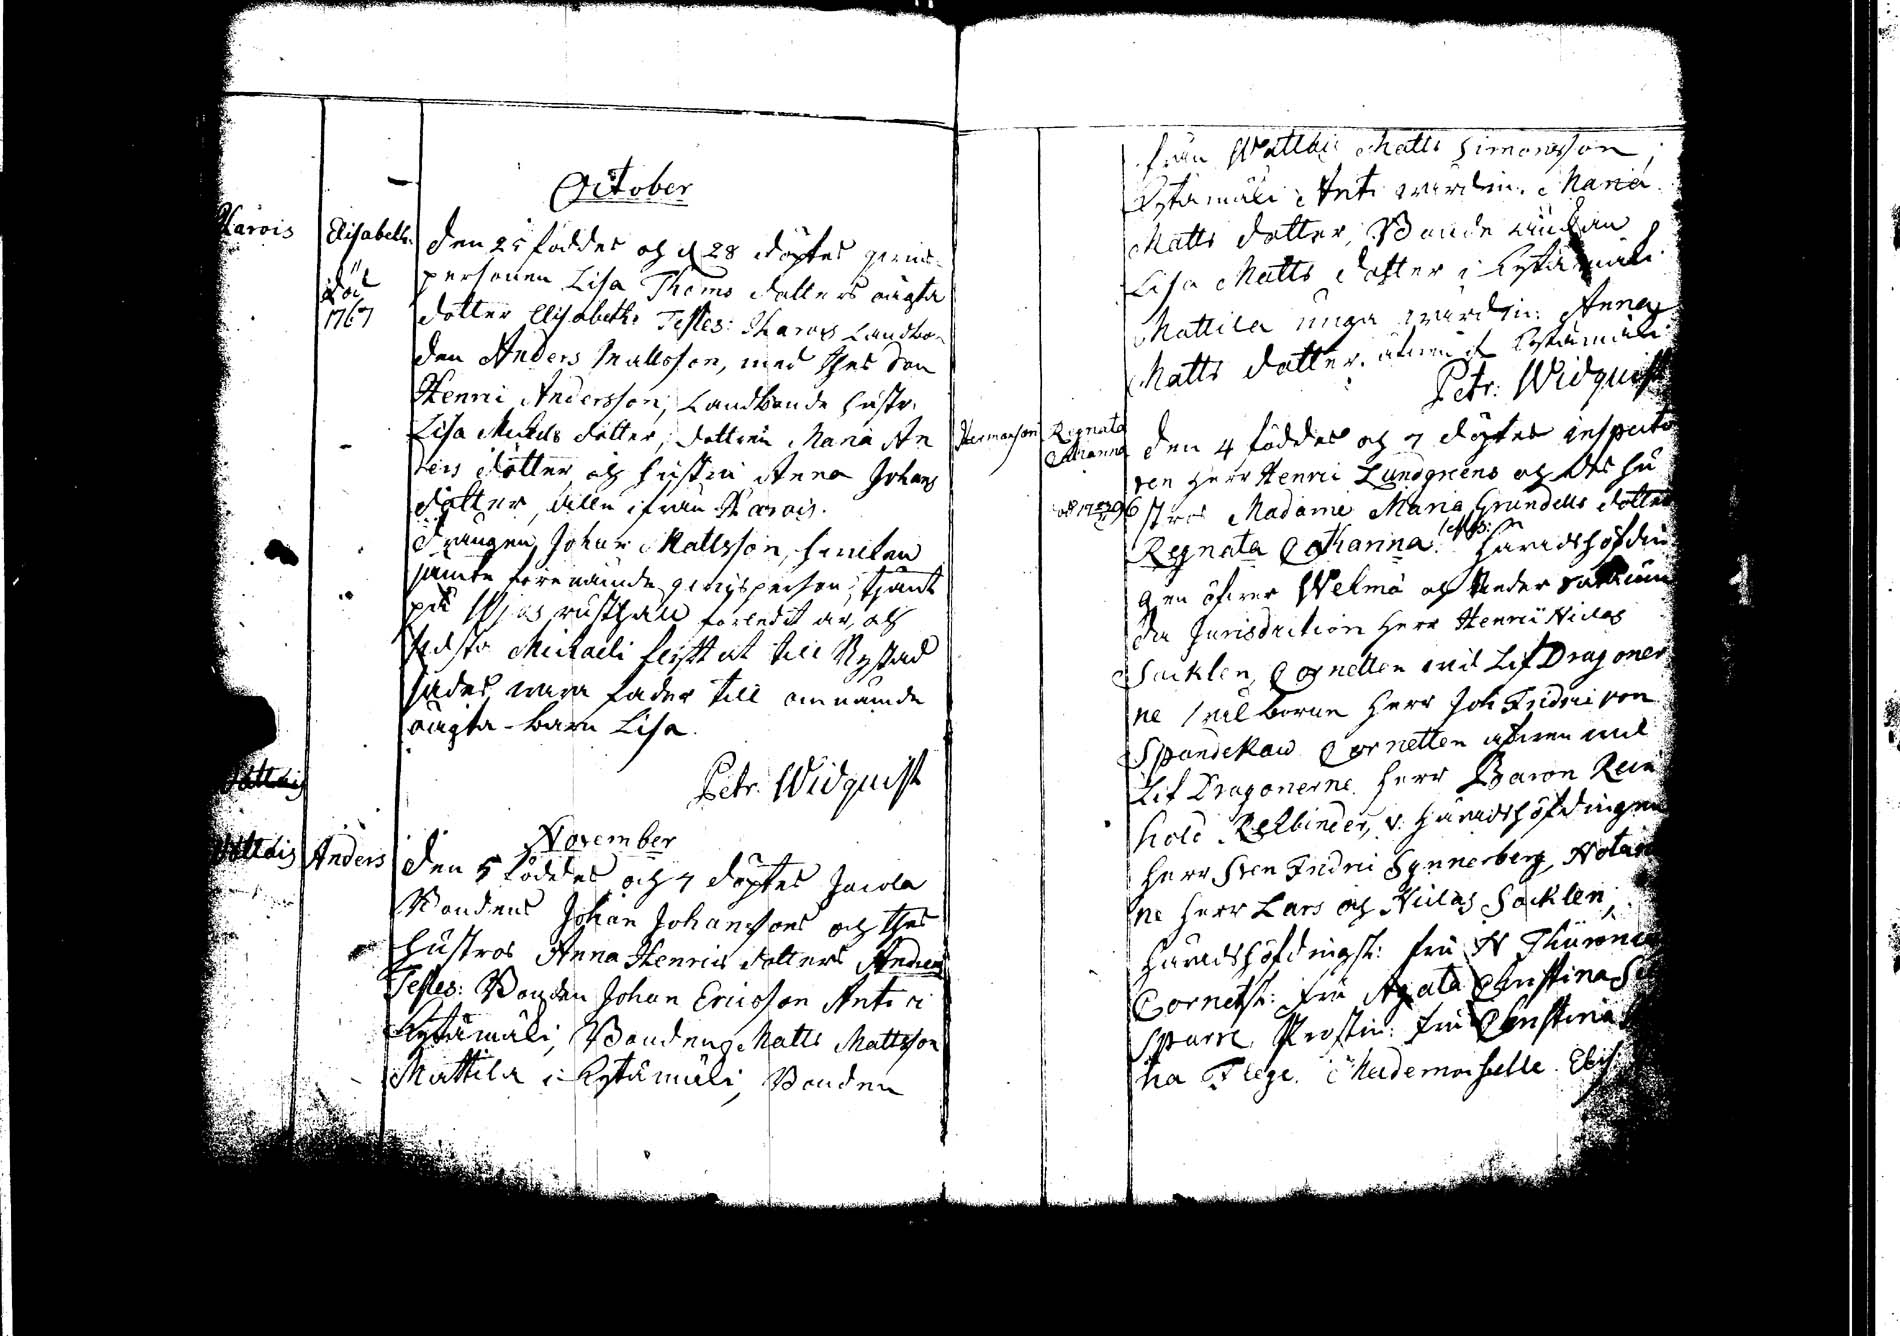 October
Karois
Elisabeth.
död
1767
den 25 föddes och d 28 döptes gerins-
personen Lisa Thoms dotters oägta
dotter Elisabeth. Testes: Karois Landbon-
den Anders Mattsson, med thes Son
Henric Andersson, Landbonde hustr.
Lisa Michels dotter, dottren Maria An
ders dotter och hustru Anna Johans
dotter, alle ifrån Karois.
Drängen Johan Mattsson, hvilken
jämte förenämde gerigsperson, tjänt
på rusthåll förledit år, och
sidsto Michaeli flyttat till Nystad
sades vara fader till omnämde
oägta-barn Lisa.
Petr. Widquist
Wattais
November
Wattais
Anders
den 5 föddes och 7 döptes Jacola
Bondens Johan Johanssons och thes
hustros Anna Henrics dotters Anders
Testes: Bonden Johan Ericsson Anti i
Kytämäki, Bonden Matts Mattsson
Mattila i Kytämäki, Bonden
från Wattais Matts Simonsson,
Kytämäki Anti värdin. Maria
Matts dotter, Bonde änkan
Lisa Matts dotter i Kytämäki
Mattila unga värdin: Anna
Matts dotter, äfven i Kytämäki
Petr: Widquist
Hermanson
Regnata
Catharina
den 4 föddes och 7 döptes inspecto
ren Herr Henric Lundgrens och thes hu
stros Madame Maria Grundells dotter
Regnata Catharina. Testes: Häradshöfdin
gen öfver Welmä och Neder
da Jurisdiction Herr Henric Niclas
Sacklen, Cornetten vid Lif Dragoner
ne välborne Herr Joh Fridric von
Spandekow Cornetten äfven vid
Lif Dragonerne Herr Baron Rein
hold Rehbinder, v: Häradshöfdingen
Herr Sven Fridric Synnerberg, Notari
ne Herr Lars och Niclas Sacklen,
Häradshöfdingsk: fru N Thuronia
Cornetsk: fru Agata Christina
Sparre, Prostin: fru Christina
na Flege. Mademoiselle Elis